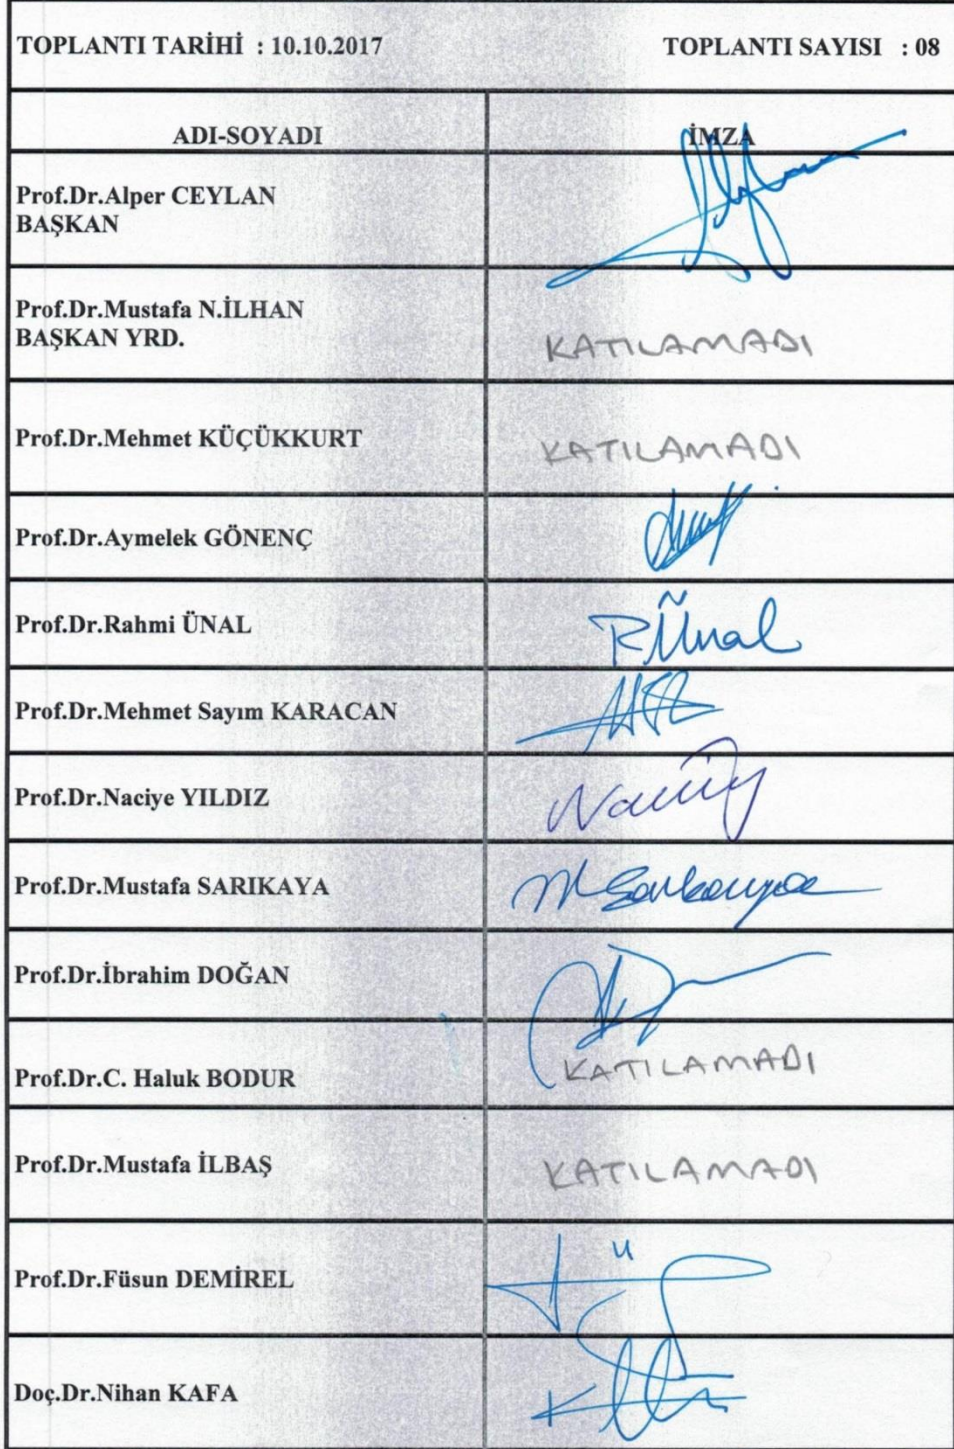 TOPLANTI TARİHİ : 10.10.2017 TOPLANTI SAYISI : 08
ADI-SOYADI İMZA
Prof.Dr.Alper CEYLAN
BAŞKAN
Prof.Dr.Mustafa N.İLHAN
BAŞKAN YRD.
KATILAMADI
Prof.Dr.Mehmet KÜÇÜKKURT KATILAMADI
Prof.Dr.Aymelek GÖNENÇ
Prof.Dr.Rahmi ÜNAL RÜnal
Prof.Dr.Mehmet Sayım KARACAN
Prof.Dr.Naciye YILDIZ
Prof.Dr.Mustafa SARIKAYA MSarıkaya
Prof.Dr.İbrahim DOĞAN
Prof.Dr.C. Haluk BODUR KATILAMADI
Prof.Dr.Mustafa İLBAŞ KATILAMADI
Prof.Dr.Füsun DEMİREL
Doç.Dr.Nihan KAFA